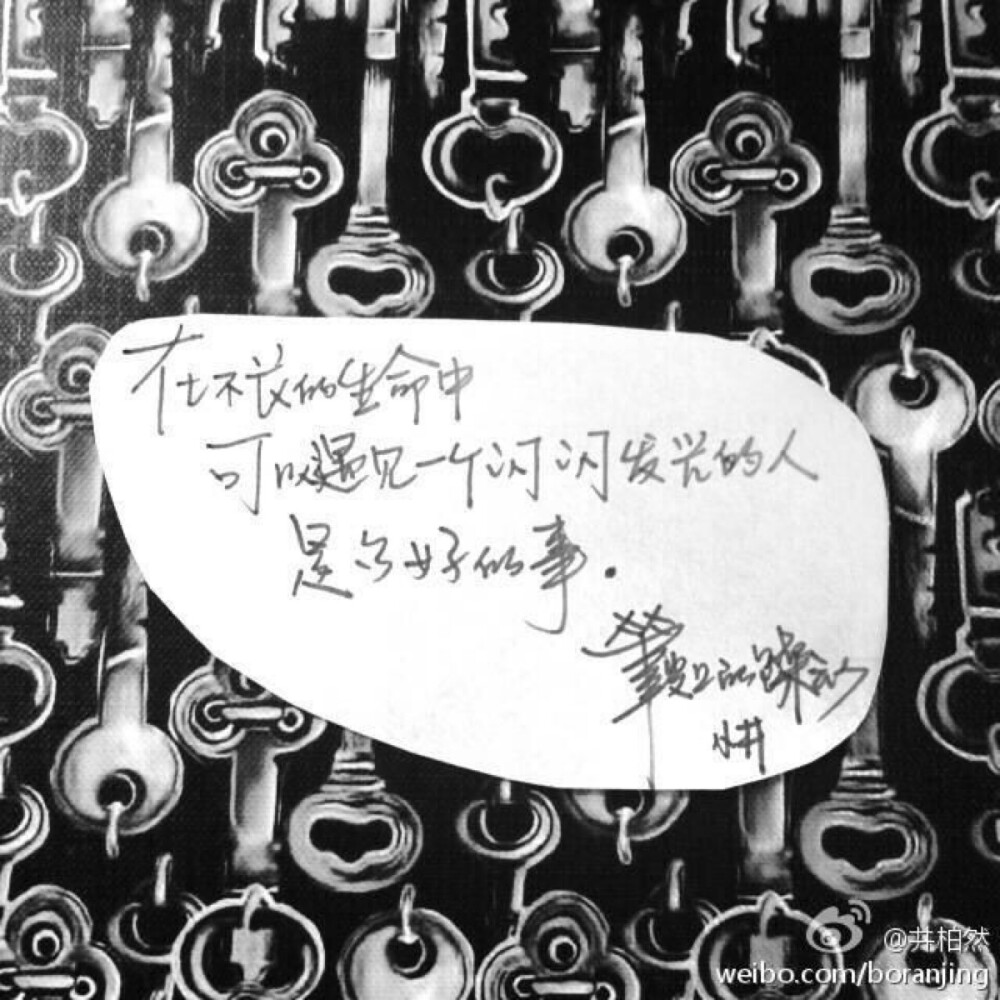 在不长的生命中
可以遇见一个闪闪发光的人
是个好的事.
小井
@井柏然
weibo.com/boranjing